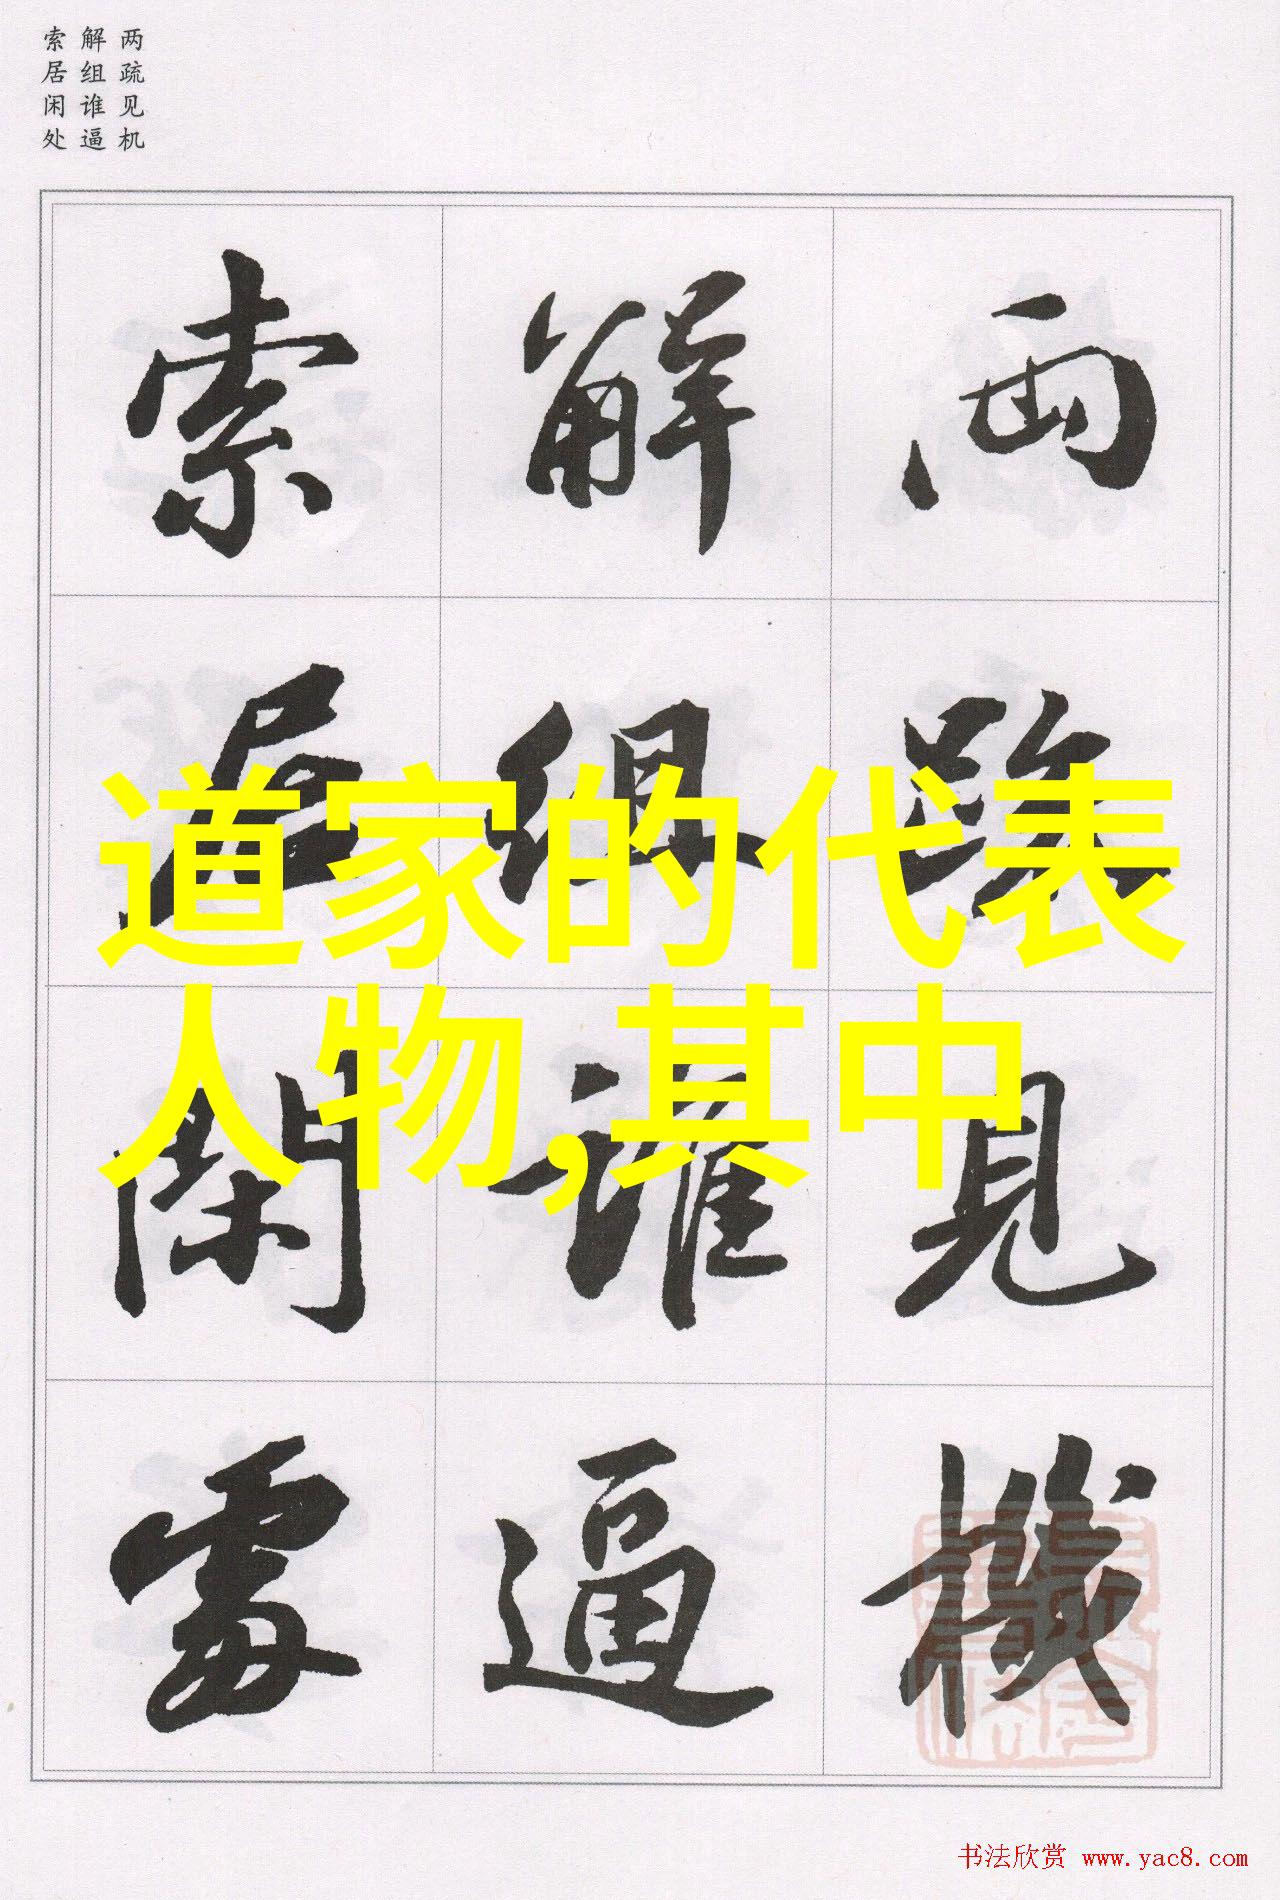 两疏见机
解组谁逼
索居闲处
两疏見機
解組誰逼
索居閑處
道家的代表
人物,其中
书法欣赏 www.yac8.com